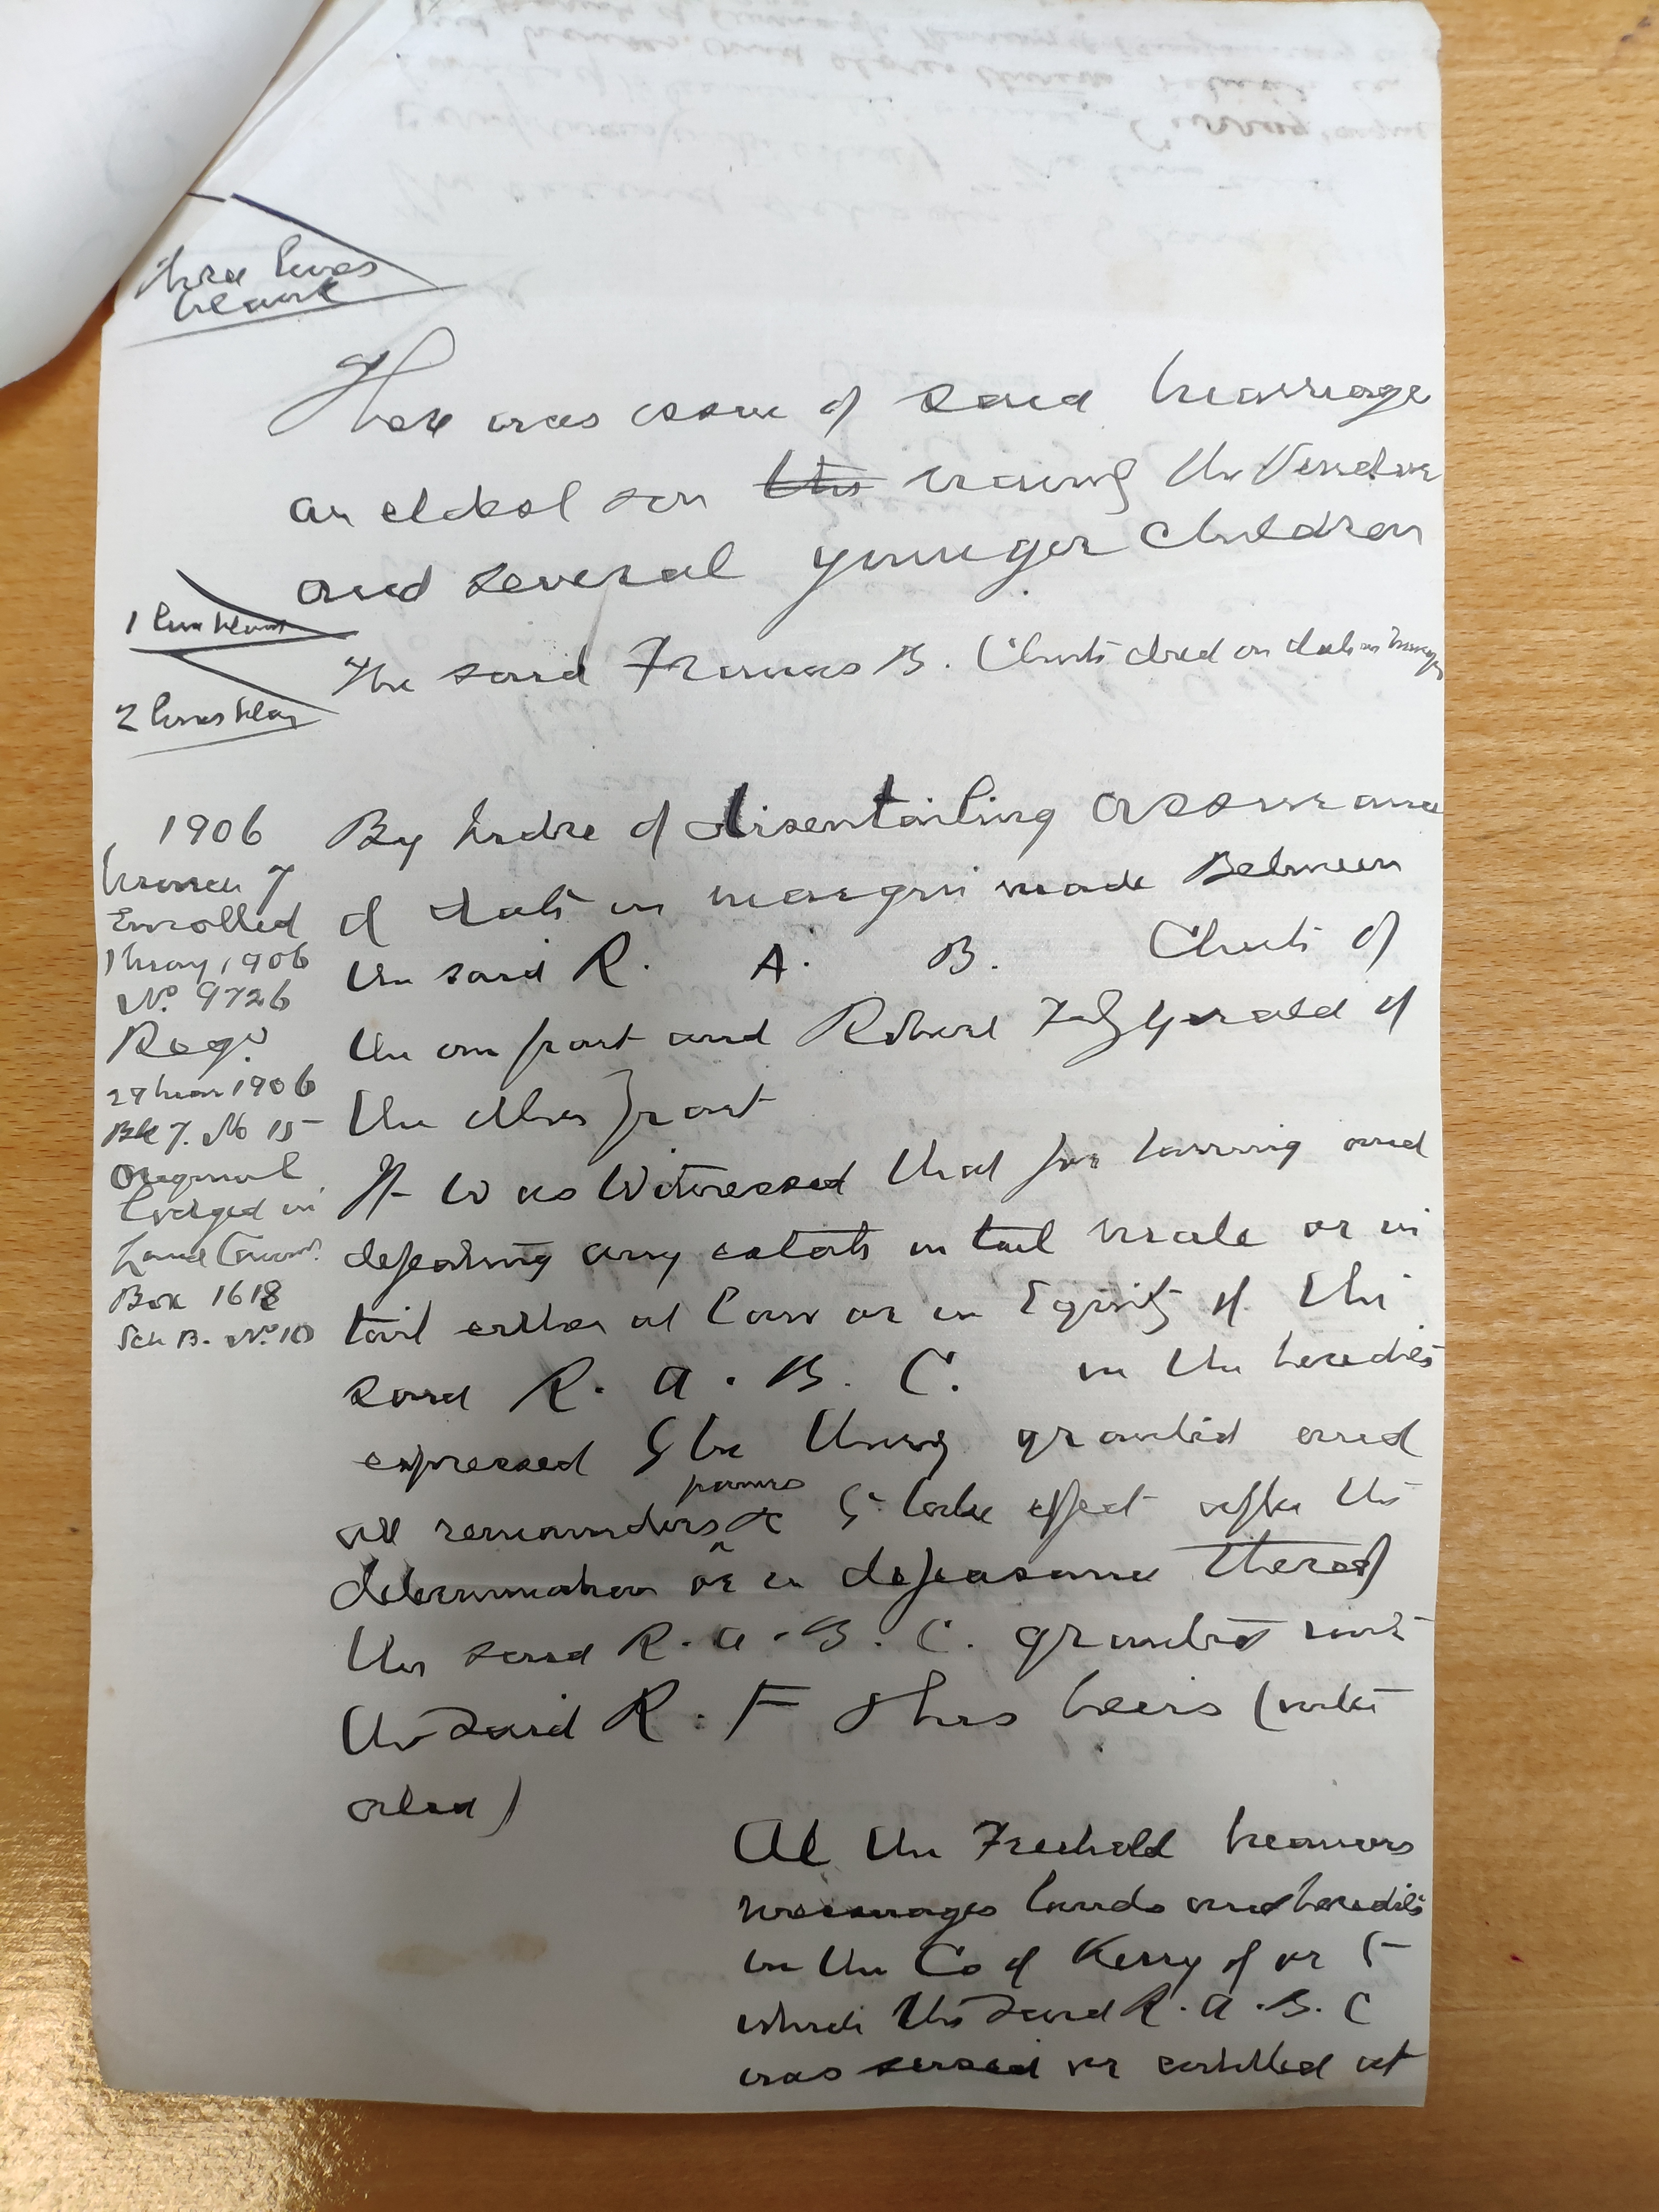 three lines
blank
There was issue of said marriage
an eldest son the vizouf the Vendor
and several younger children
1 line blank
The said Francis B. Chute died on date in margin
2 lines blank
1906
March 7
Enrolled
1 May 1906
No. 9726
Regd
29 Mar 1906
Bk 7. No 15
Original
lodged in
Land Commn
Box 1618
Sch B. No. 10
By Indre of disentailing assurance
of date in margin made Between
the said R. A. B. Chute of
the one part and Robert FitzGerald of
the other part
It was Witnessed that for barring and
defeating any estate in tail male or in
tail either at law or in Equity of the
said R. A. B. C. in the heredits
expressed to be thereby granted and
all remainders powers &c to take effect after the
determination or in defeasance thereof
the said R. A. B. C. granted unto
the said R. F & his heirs (inter
alia)
All the Freehold Manors
messuages lands and heredits
in the Co of Kerry of or to
which the said R. A. B. C
was seised or entitled at